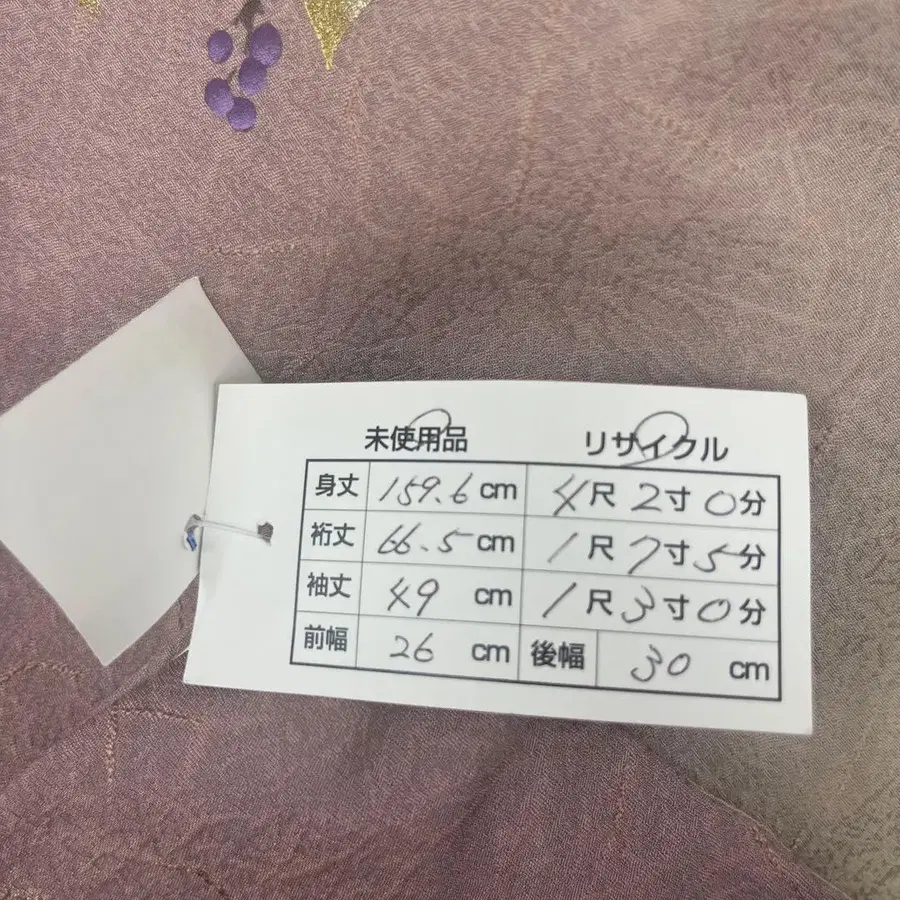 未使用品 リサイクル
身丈 159.6 cm 4尺2寸0分
裄丈 66.5 cm 1尺7寸5分
袖丈 49 cm 1尺3寸0分
前幅 26 cm 後幅 30 cm